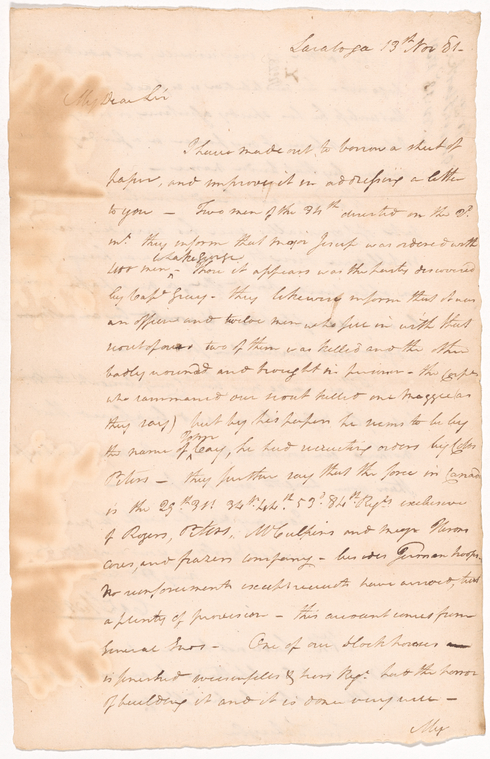 Saratoga 13th Nov 81-
My Dear Sir
I have made out to borrow a sheet of
paper, and improve it in addressing a letter
to you - Two men of the 34th deserted on the 2d.
inst. they inform that major Jesup was ordered with
to Lake George
400 men, those it appears was the party discovered
by Capt Gray - they likewise inform that it was
an officer and twelve men who fell in with that
scout of ours two of them was killed and the other
badly wounded and brought in prisoner - the Corpl
who commanded our scout killed one Maggee as
they say) but by his papers he seems to be by
the name of John Cary, he had recruiting orders by Coll
Peters - they further say that the force in Canada
is the 29th 31st 34th 44th. 53d 84th Regts exclusive
of Rogers, Peters, McAlpins and major Nerons
cores, and frazers company - besides German troops,
no reinforcements recruits have arrived, but
a plenty of provision - this account comes from
General Enos - One of our blockhouses
is finished Regt. had the honor
of building it and it is done very well -
My